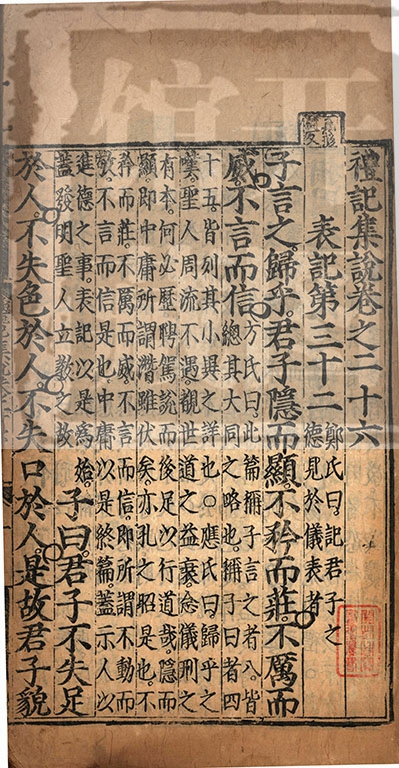 禮記集說卷之二十六
表記第三十二
鄭氏曰。記君子之
德見於儀表者
子言之。歸乎。君子隱而顯。不矜而莊。不厲而
威。不言而信。
方氏曰。此篇稱子言之者八。皆
總其大同之略也。稱子曰者四
十五。皆列其小異之詳也○應氏曰。歸乎之
嘆。聖人周流不遇。覩世道之益衰。念儀刑之
有本。何必歷聘駕說。而後足以行道哉。隱而
顯。即中庸所謂潛雖伏矣。亦孔之昭是也。不
矜而莊。不厲而威。不言而信。即所謂不動而
敬。不言而信是也。中庸以是終篇。蓋示人以
進德之事。表記以是爲始。
蓋發明聖人立教之故
子曰。君子不失足
於人。不失色於人。不失口於人。是故君子貌